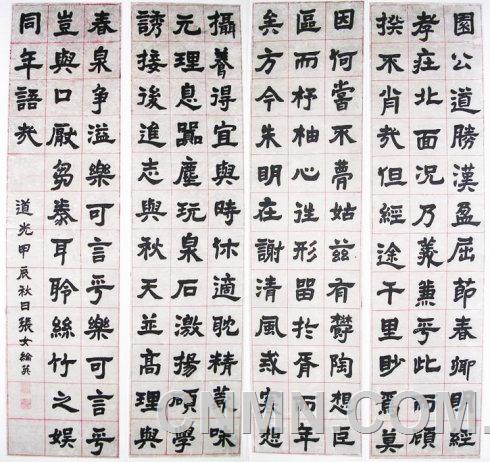 園公道勝漢盈屈節春卿明經
孝在北面況乃義兼乎此而碩
揆不肖哉但經途千里眇焉莫
因何當不夢姑茲有鬱陶想臣
區而杼柚心往形留於胥百年
矣方今朱明在謝清風戒寒想
攝養得宜與時休適耽精義味
元理息囂塵玩泉石激揚碩學
誘接後進志與秋天並高理與
春泉争溢樂可言乎樂可言乎
豈與口厭芻豢耳聆絲竹之娛
同年語哉
道光甲辰秋日張女綸英
CNMN.COM.